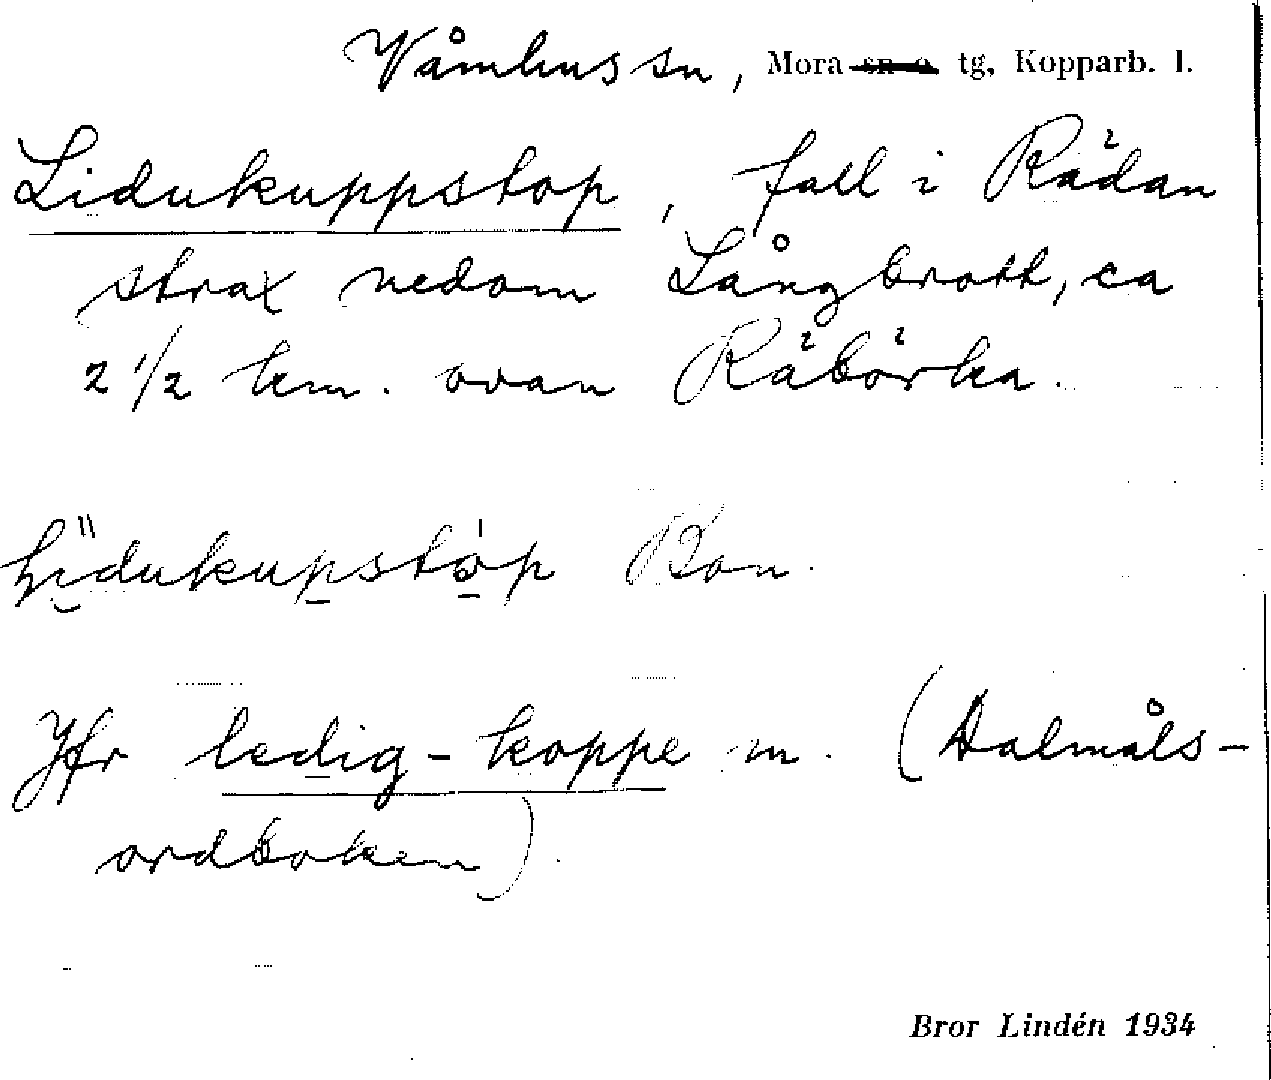 Våmhus sn, Mora sn o. tg, Kopparb. l.
Lidukuppstop, fall i Rädan
strax nedom Långbrott, ca
2 1/2 km. ovan Räbörka.
Bon.
Jfr ledig-koppe m. (Dalmåls-
ordboken).
Bror Lindén 1934